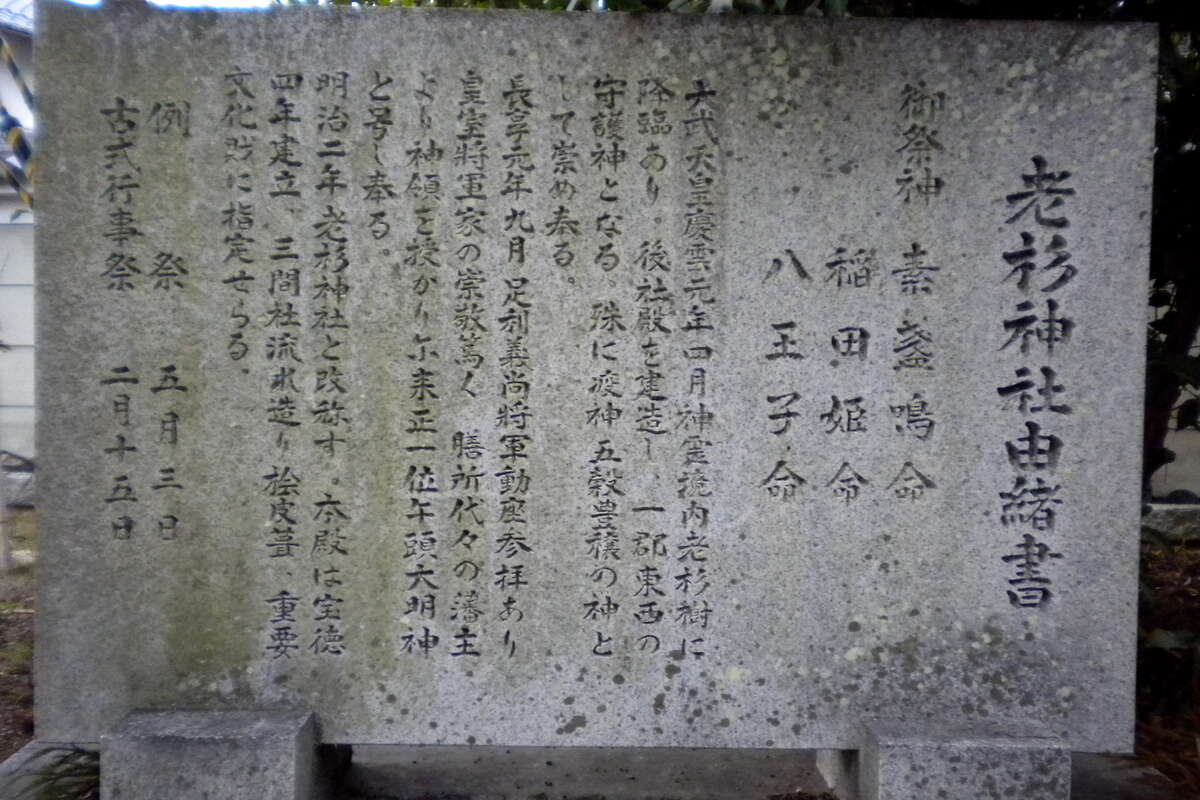 老杉神社由緒書
御祭神 素盞鳴命
稲田姫命
八王子命
天武天皇慶雲元年四月神霊境内老杉樹に
降臨あり。後社殿を建造し、一郡東西の
守護神となる。殊に渡神五穀豊穣の神と
して崇め奉る。
長享元年九月足利義尚将軍動座参拝あり
皇室将軍家の崇敬篤く 膳所代々の藩主
より神領を授かり尓来正一位午頭大明神
と号し奉る。
明治二年老杉神社と改称す。本殿は宝徳
四年建立、三間社流水造り桧皮葺、重要
文化財に指定せらる。
例祭 五月三日
古式行事祭 二月十五日